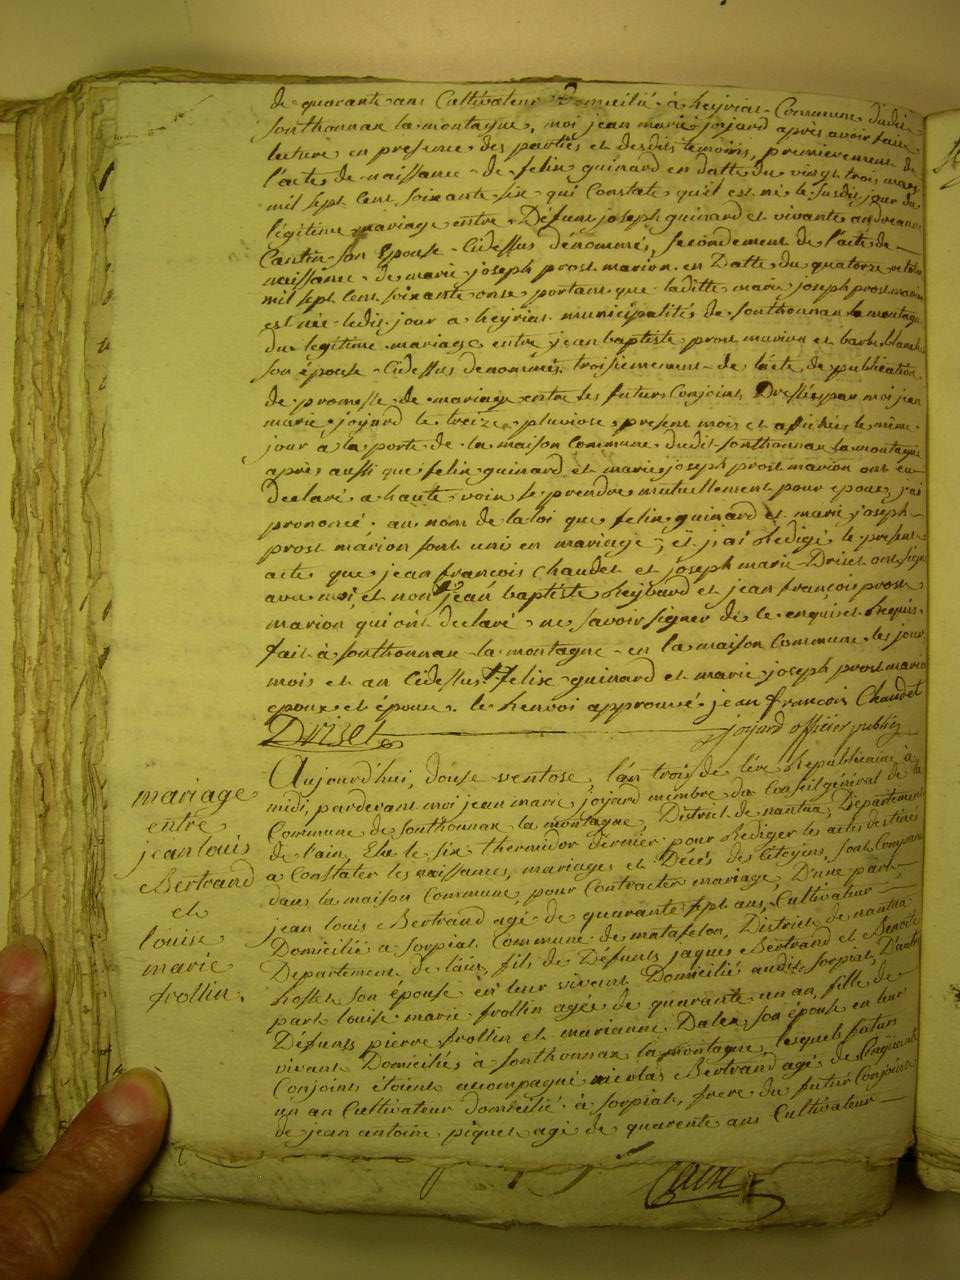 de quarante ans Cultivateur Domicilié à heyriat Commune dudit
sonthonnax la montagne, moi jean marie jojard après avoir faire
lecture en presence des parties et desdits temoins, premierement de
l'acte de naissance de felix guinard en datte du vingt trois mars
mil sept cent soixante six qui Constate quil est né le susdit jour du
légitime mariage entre Défunt joseph guinard et vivante andreanne
Cantin son Epouse Cidessus dénommé, secondement de l'acte de
naissance de marie joseph prost marion en Datte du quatorze
mil sept cent soixante onse portant que laditte marie joseph prost marion
est née ledit jour a heyriat municipalité de sonthonnax la montagne
du legitime mariage entre jean baptiste prost marion et barbe blanche
son épouse Cidessus denommés, troisiemement de lacte de publication
de promesse de mariage entre les futurs Conjoint Dressés par moi jean
marie jojard le treize pluviose present mois et affichés le même
jour à la porte de la maison Commune dudit sonthonnax la montagne
après aussi que felix guinard et marie joseph prost marion ont eu
declaré a haute voix se prendre mutuellement pour epoux, j'ai
prononcé au nom de la loi que felix guinard et marie joseph
prost marion sont uni en mariage, et j'ai Rédigé le present
acte que jean françois Chaudet et joseph marie Driset ont signé
avec moi, et non jean baptiste Reybard et jean françois prost
marion qui ont declaré ne savoir signer de ce enquis et Requis.
fait à sonthonnax la montagne en la maison Commune les jour
mois et an Cidessus. felix guinard et marie joseph prost marion
epoux et épouse. le henvoi approuvé. jean françois Chaudet
Driset jojard officier public
mariage
entre
jean louis
Bertrand
et
louise
marie
frollin.
Aujourd'hui, douse ventose, l'an trois de l'ére Republicaine à
midi, pardevant moi jean marie jojard membre du Conseil général de la
Commune de sonthonnax la montagne, District de nantua, Departement
de l'ain, Elu le six thermidor dernier pour Rédiger les actes destinés
a Constater les naissances, mariages et Décès des Citoyens, sont Comparu
dans la maison Commune, pour Contracter mariage, D'une part,
jean louis Bertrand agé de quarante sept ans, Cultivateur
Domicilié a sorpiat Commune de matafelon, District de nantua
Departement de l'ain, fils de Défunts jaques Bertrand et Benoite
hostet son épouse en leur vivent Domiciliés audit sorpiat, D'autre
part louise marie frollin agée de quarante un an, fille de
Défunts pierre frollin et marianne Dalex son épouse en leur
vivant Domiciliés à sonthonnax la montagne, lesquels futurs
Conjoins étoient acompagné nicolas Bertrand agé de Cinquante
un an Cultivateur domicilié à sorpiat, frere du futur Conjoint
de jean antoine piquet agé de quarente ans Cultivateur